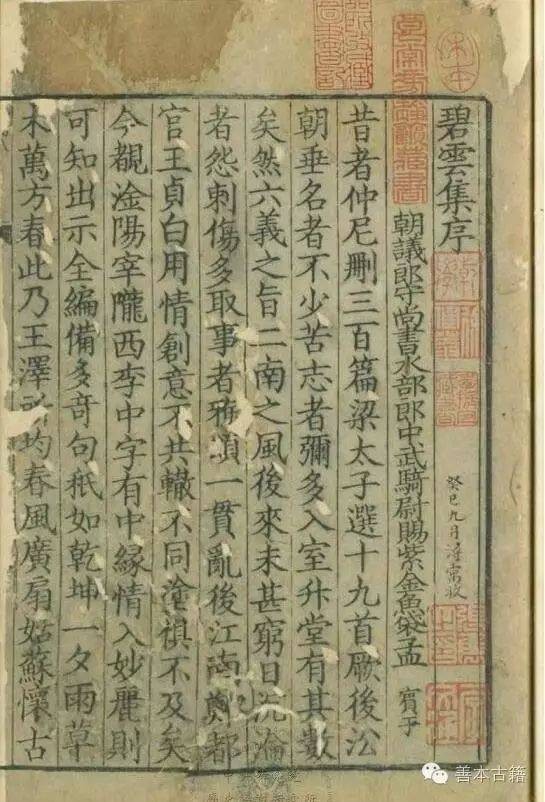 碧雲集序
朝議郎守尚書水部郎中武騎尉賜紫金魚袋孟 賓于
昔者仲尼刪三百篇梁太子選十九首厥後㳂
朝垂名者不少苦志者彌多入室升堂有其數
矣然六義之旨二南之風後來未甚窮日沉淪
者怨刺傷多取事者雅頌一貫亂後江南鄭都
官王貞白用情創意不共轍不同塗俱不及矣
今覩淦陽宰隴西李中字有中緣情入妙麗則
可知出示全編備多奇句秖如乾坤一夕雨草
木萬方春此乃王澤所均春風廣扇姑蘇懷古
癸巳九月
善本古籍